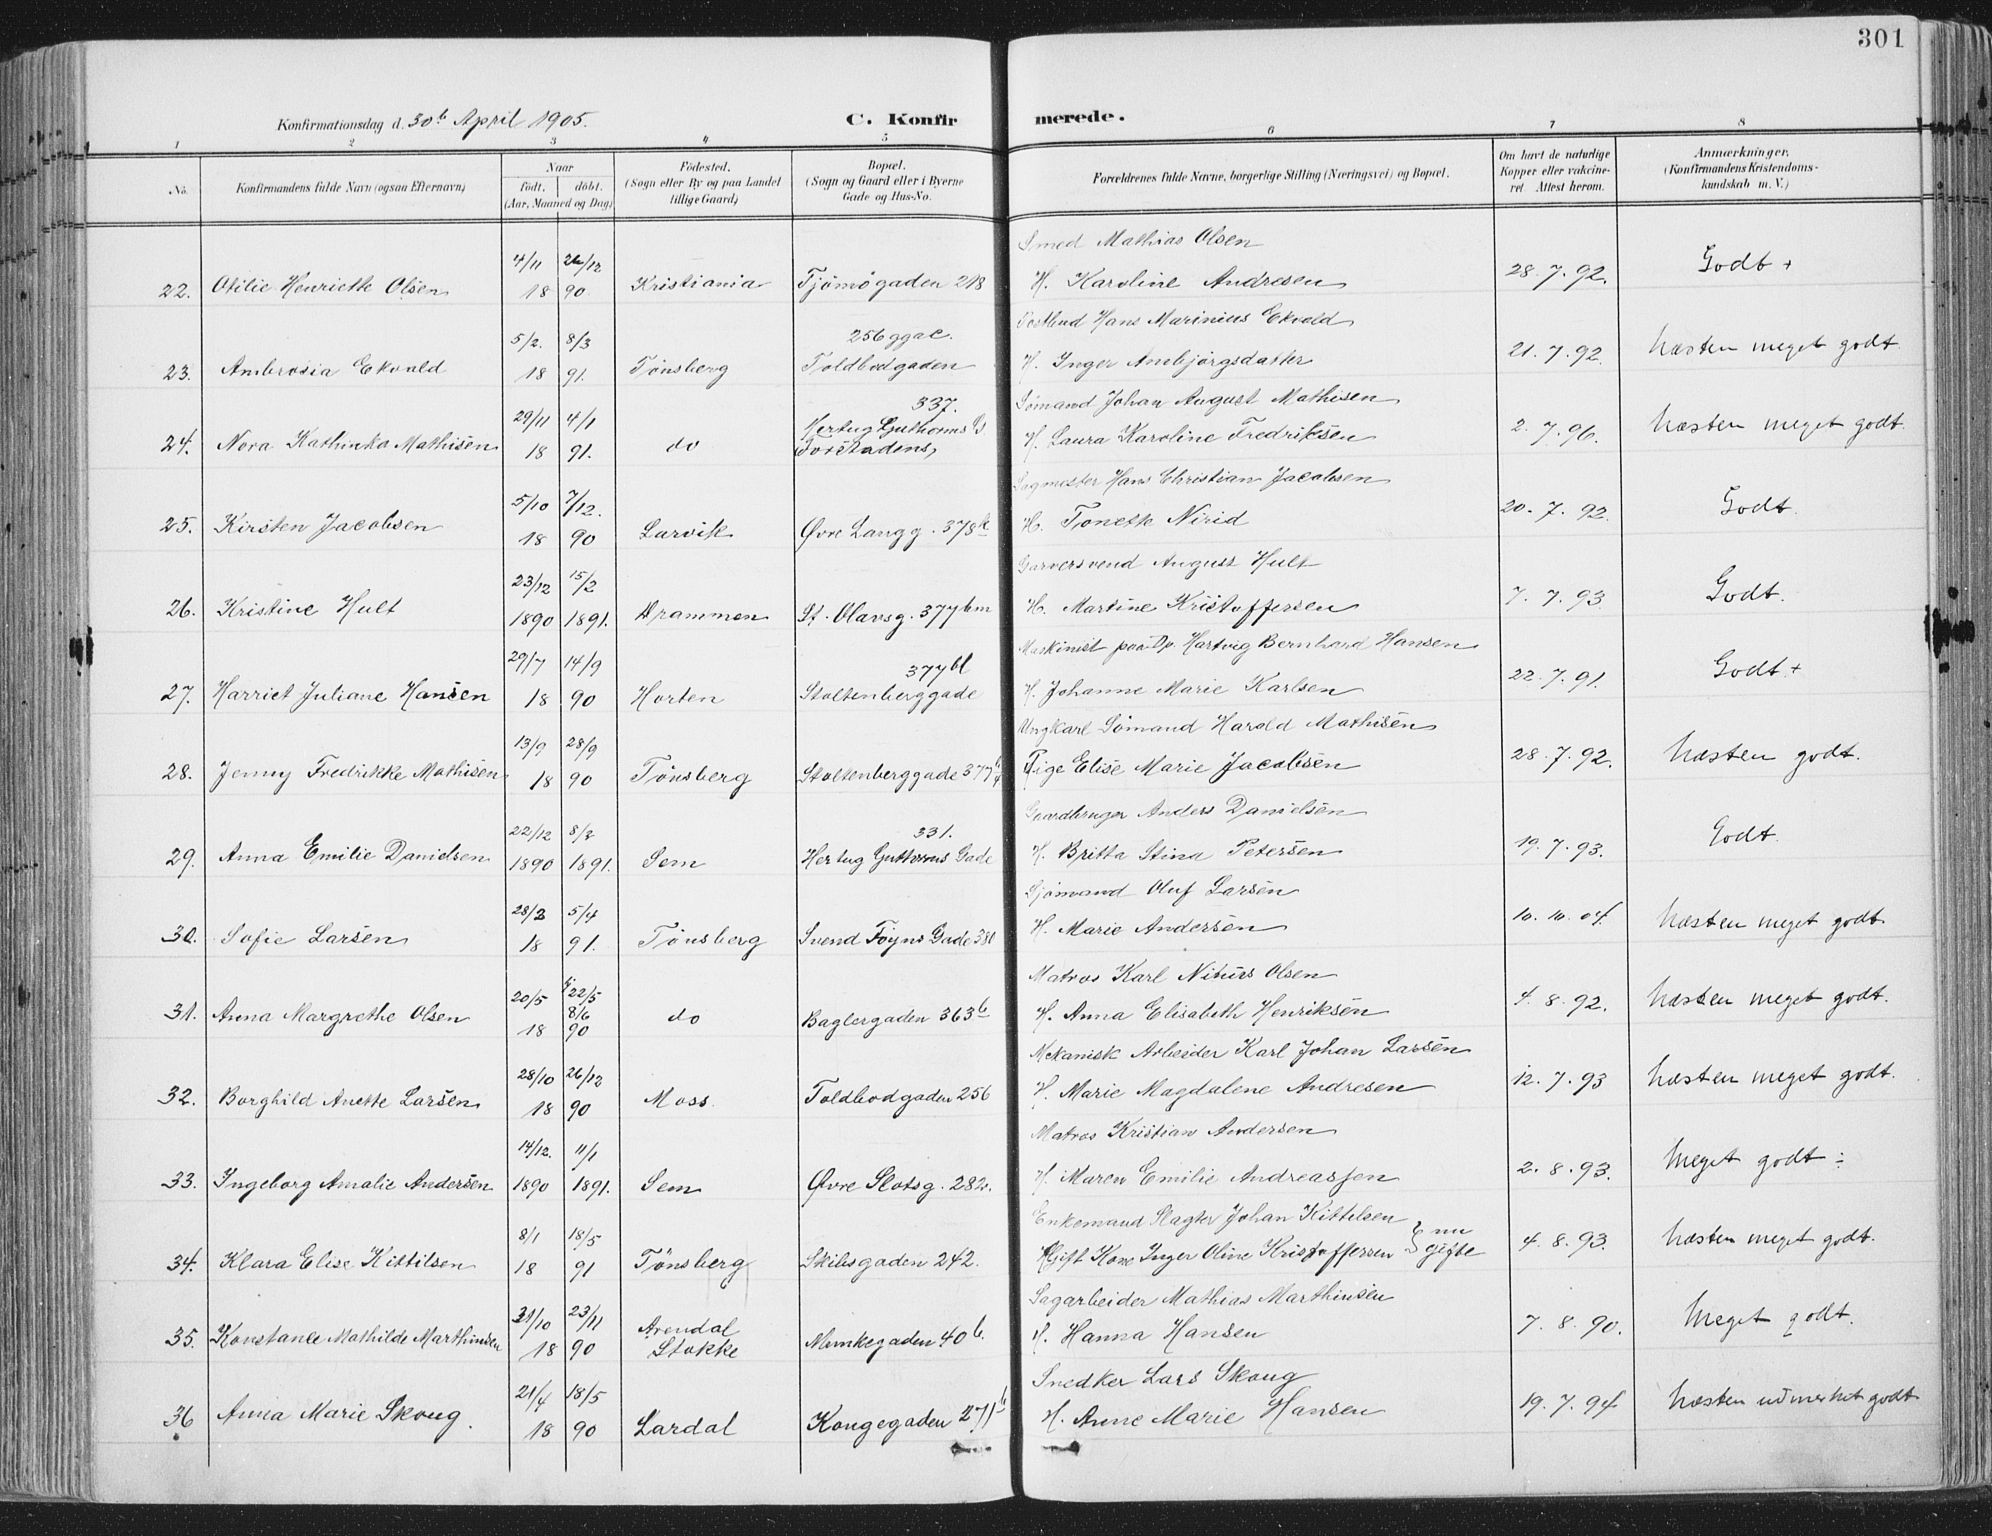 301
Konfirmationsdag d. 30te April 1905.
C. Konfirmerede.
1 2 3 4 5 6 7 8
No.
Konfirmandens fulde Navn (ogsaa Efternavn)
Naar
født. døbt.
(Aar, Maaned og Dag)
Fødested.
(Sogn eller By og paa Landet
tillige Gaard)
Bopæl.
(Sogn og Gaard eller i Byerne
Gade og Hus-No.
Forældrenes fulde Navne, borgerlige Stilling (Næringsvei) og Bopæl.
Om havt de naturlige
Kopper eller vakcine-
ret Attest herom.
Anmærkninger.
(Konfirmandens Kristendoms-
kundskab m. V.)
4/11 26/12 Smed Mathias Olsen
22. Otilie Henriette Olsen 18 90 Kristiania Tjømøgaden 218 H. Karoline Andresen 28.7.92. Godt +
5/2. 8/3 256 Postbud Hans Marinius Ekvold
23. Ambrosia Ekvold 18 91. Tønsberg Toldbodgaden H. Inger Ambjørgsdatter 21.7.92. Næsten meget godt.
29/11 4/1 337. Hertug Guthorms G Sømand Johan August Mathisen
24. Nora Kathinka Mathisen 18 91. do H. Laura Karoline Fredriksen 2.7.96. Næsten meget godt.
5/10 7/12. Sagmester Hans Christian Jacobsen
25. Kirsten Jacobsen 18 90 Larvik Øvre Langg. 378 H. Tonette Nirid 20.7.92. Godt.
23/12 15/2 Garversvend August Hult
26. Kristine Hult 1890 1891. Drammen St. Olavsg. 377bm H. Martine Kristoffersen 7.7.93. Godt.
29/7 14/9 377bl Maskinist paa Dp. Hartvig Bernhard Hansen
27. Harriet Juliane Hansen 18 90 Horten Stoltenberggade H. Johanne Marie Karlsen 22.7.91. Godt +
13/9 28/9 Ungkarl Sømand Harald Mathisen
28. Jenny Fredrikke Mathisen 18 90 Tønsberg Stoltenberggade 377 Pige Elise Marie Jacobsen 28.7.92. Næsten godt.
22/12 8/3 331. Gaardbruger Anders Danielsen
29. Anna Emilie Danielsen 1890 1891. Sem Hertug Guthorms Gade H. Britta Stina Petersen 19.7.93. Godt.
28/2 5/4 Sjømand Oluf Larsen
30. Sofie Larsen 18 91. Tønsberg Svend Føyns Gade 380 H. Marie Andersen 10.10.04. Næsten meget godt.
20/5 22/5 8/6 Matros Karl Olsen
31. Anna Margrethe Olsen 18 90 do Baglergaden 363b H. Anna Elisabeth Henriksen 4.8.92. Næsten meget godt.
28/10 26/12 Mekanisk Arbeider Karl Johan Larsen
32. Borghild Anette Larsen 18 90 Moss. Toldbodgaden 256 H. Marie Magdalene Andresen 12.7.93 Næsten meget godt.
14/12. 11/1 Matros Kristian Andersen
33. Ingeborg Amalie Andersen 1890 1891. Sem Øvre Slotsg. 282. H. Maren Emilie Andreassen 2.8.93. Meget godt ÷
8/1 18/5 Enkemand Slagter Johan Kittilsen } nu
34. Klara Elise Kittilsen 18 91 Tønsberg Skibsgaden 242. Gift Kone Inger Oline Kristoffersen gifte 4.8.93. Næsten meget godt.
31/10 23/11 Arendal Sagarbeider Mathias Marthinsen
35. Konstance Mathilde Marthinsen 18 90 Stokke Munkegaden 40b. H. Hanna Hansen 7.8.90. Meget godt.
21/4 18/5 Snedker Lars Skoug
36 Anna Marie Skoug. 18 90 Lardal Kongegaden 271b H. Anne Marie Hansen 19.7.94. Næsten udmerket godt